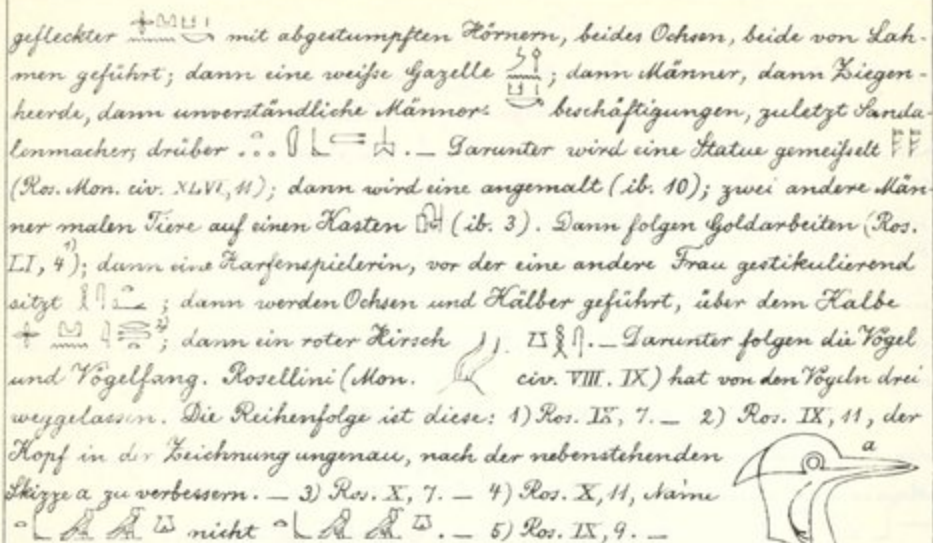 gefleckter mit abgestumpften Hörnern, beides Ochsen, beide von Lah-
men geführt; dann eine weiße Gazelle ; dann Männer, dann Ziegen-
heerde, dann unverständliche Männer- beschäftigungen, zuletzt Sanda-
lenmacher, drüber . _ Darunter wird eine Statue gemeißelt
(Ros. Mon. civ. XLVI, 11); dann wird eine angemalt (ib. 10); zwei andere Män-
ner malen Tiere auf einen Kasten (ib. 3). Dann folgen Goldarbeiten (Ros.
LI, 4¹⁾); dann eine Harfenspielerin, vor der eine andere Frau gestikulierend
sitzt ; dann werden Ochsen und Kälber geführt, über dem Kalbe
²⁾; dann ein roter Hirsch . _ Darunter folgen die Vögel
und Vogelfang. Rosellini (Mon. civ. VIII. IX) hat von den Vögeln drei
weggelassen. Die Reihenfolge ist diese: 1) Ros. IX, 7. _ 2) Ros. IX, 11, der
Kopf in der Zeichnung ungenau, nach der nebenstehenden
a
Skizze a zu verbessern. _ 3) Ros. X, 7. _ 4) Ros. X, 11, Name
nicht . _ 5) Ros. IX, 9. _